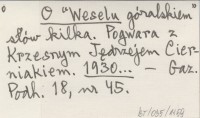 O "Weselu góralskiem"
słów kilka. Pogwara z
Krzesnym Jędrzejem Cier-
niakiem. 1930... — Gaz.
Podh. 18, nr 45.